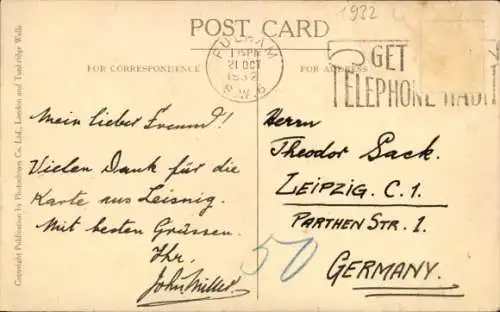 POST CARD
1932
FULHAM
1 15 PM
21 OCT
1932
S.W.6
GET
TELEPHONE HABIT
FOR CORRESPONDENCE
FOR ADDRESS
Copyright Publication by Photochrom Co. Ltd., London and Tunbridge Wells
Mein lieber Freund!
Vielen Dank für die
Karte aus Leisnig.
Mit besten Grüssen.
Ihr.
John Miller
Herrn
Theodor Sack.
LEIPZIG. C. 1.
PARTHEN STR. 1.
GERMANY.
50